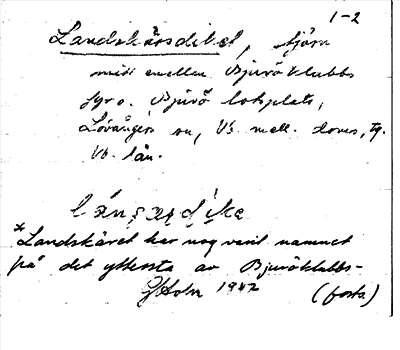 1-2
Landskärsdiket, tjärn
mitt emellan Bjuröklubbs
fyr o. Bjurö lotsplats,
Lövångers sn, Vb. mell. dovre, tg.
Vb. län.
*Landskäret har nog varit namnet
på det yttersta av Bjuröklubbs-
GHolm 1942 (forts.)